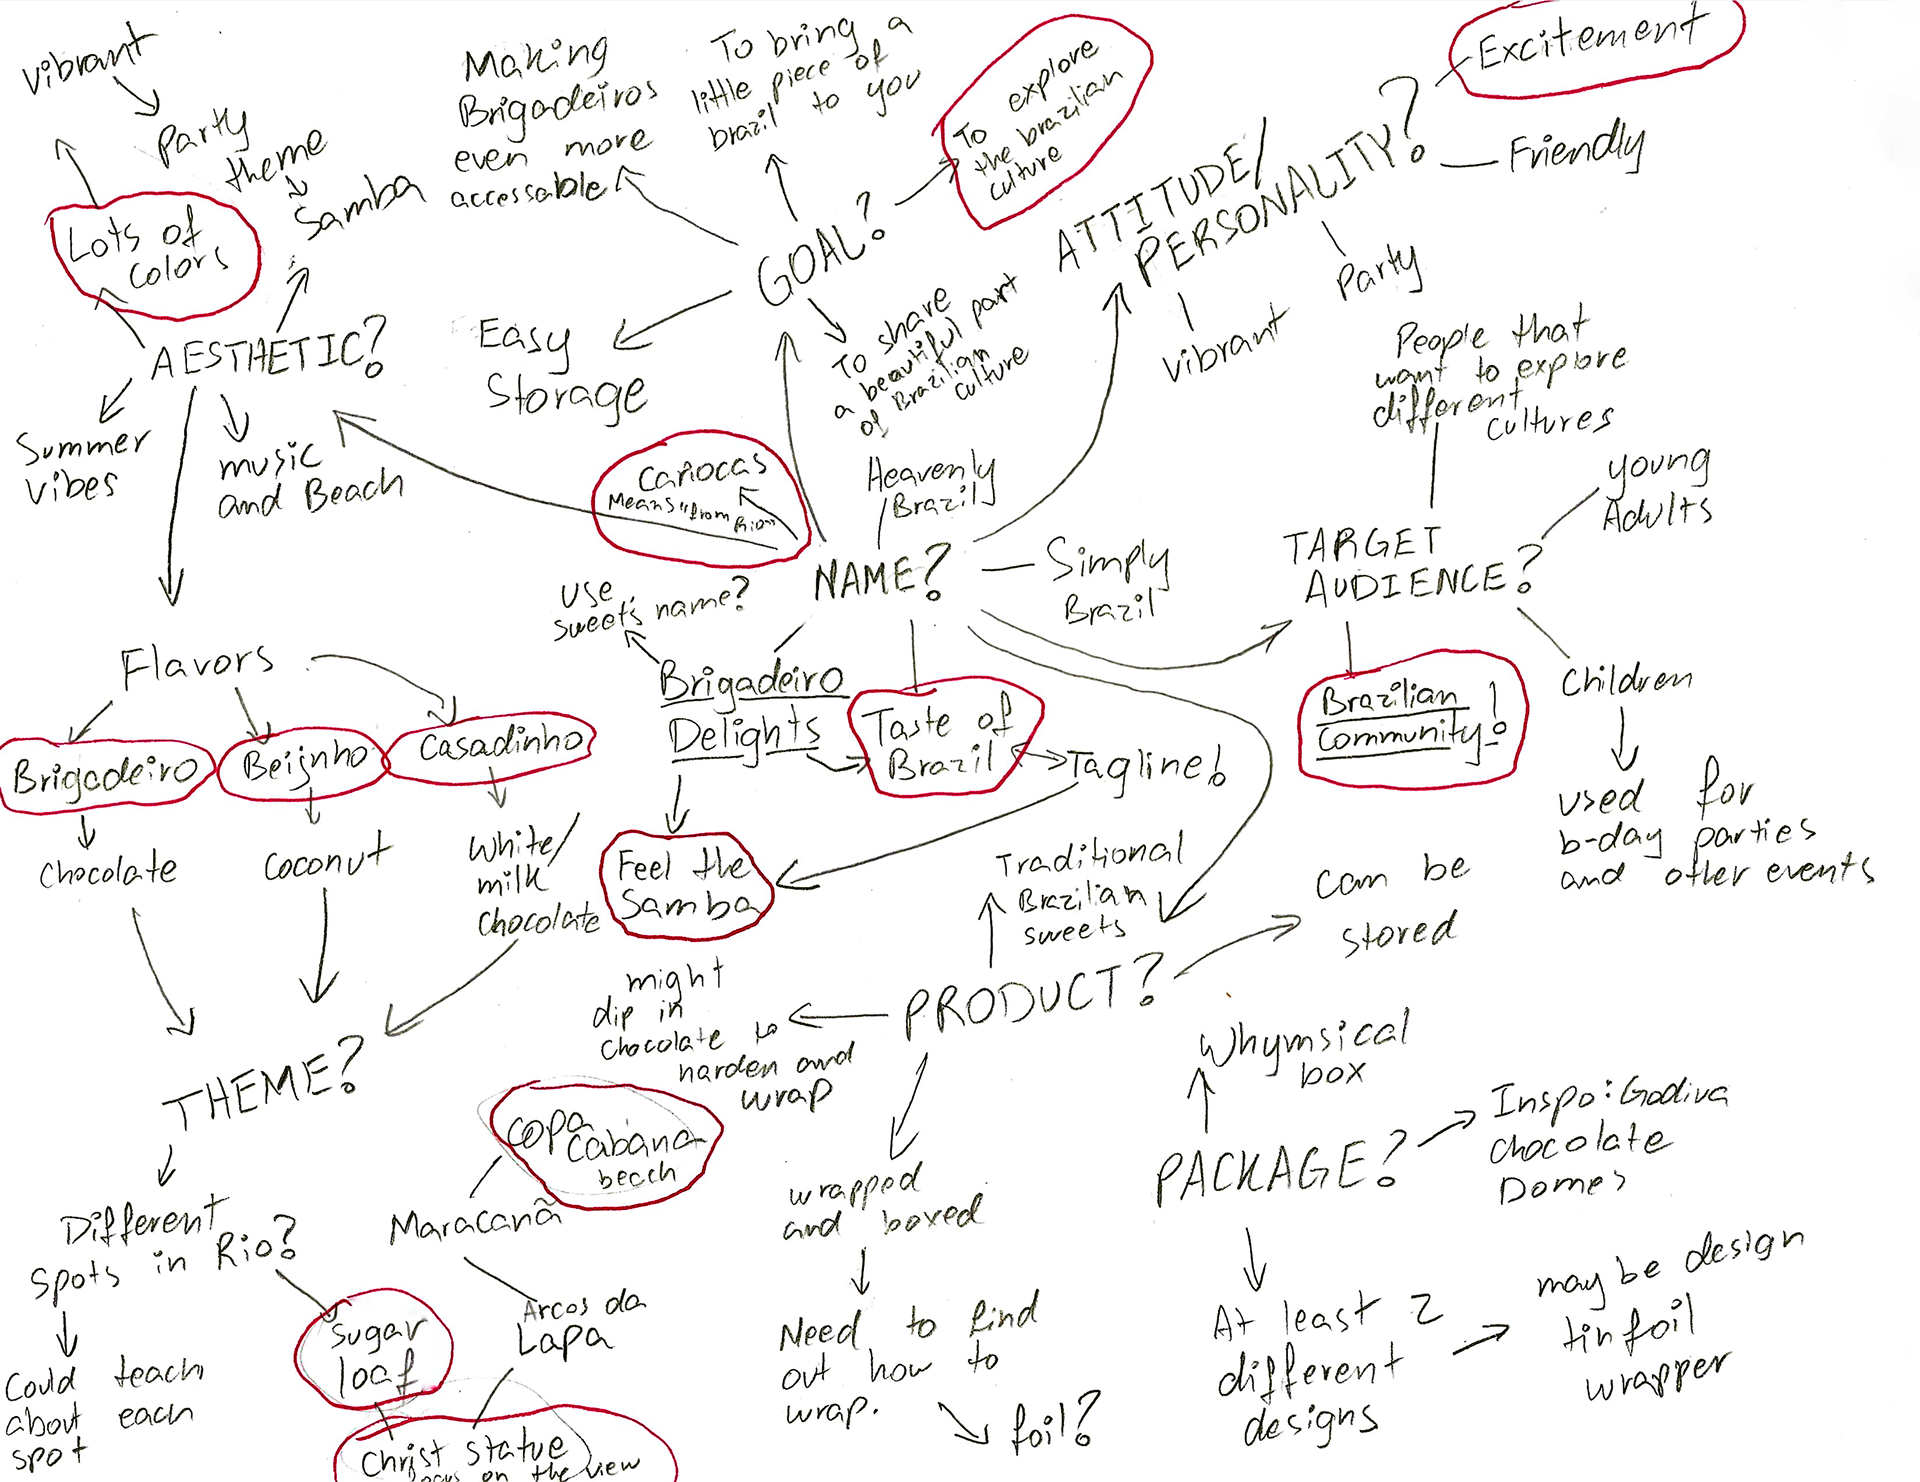 Vibrant
Party
theme
Samba
Lots of
colors
AESTHETIC?
Summer
vibes
music
and Beach
Making
Brigadeiros
even more
accessable
To bring a
little piece of
brazil to you
To explore
the brazilian
culture
GOAL?
Easy
Storage
To share
a beautiful part
of Brazilian
culture
ATTITUDE/
PERSONALITY?
Excitement
Friendly
Party
Vibrant
People that
want to explore
different
cultures
young
Adults
TARGET
AUDIENCE?
Brazilian
Community!
Children
used for
b-day parties
and other events
Cariocas
Means "from Rio"
Heavenly
Brazily
NAME?
Simply
Brazil
use
sweets name?
Brigadeiro
Delights
Taste of
Brazil
Tagline!
Feel the
Samba
Flavors
Brigadeiro
Beijnho
Casadinho
Chocolate
Coconut
White/
milk
Chocolate
THEME?
Different
spots in Rio?
Could teach
about each
spot
Sugar
loaf
Copa
Cabana
beach
Maracanã
Arcos da
Lapa
Christ statue
on the view
Traditional
Brazilian
sweets
PRODUCT?
can be
stored
might
dip in
chocolate to
harden and
wrap
wrapped
and boxed
Need to find
out how to
wrap.
foil?
Whymsical
box
PACKAGE?
Inspo: Godiva
chocolate
Domes
At least 2
different
designs
may be design
tinfoil
wrapper